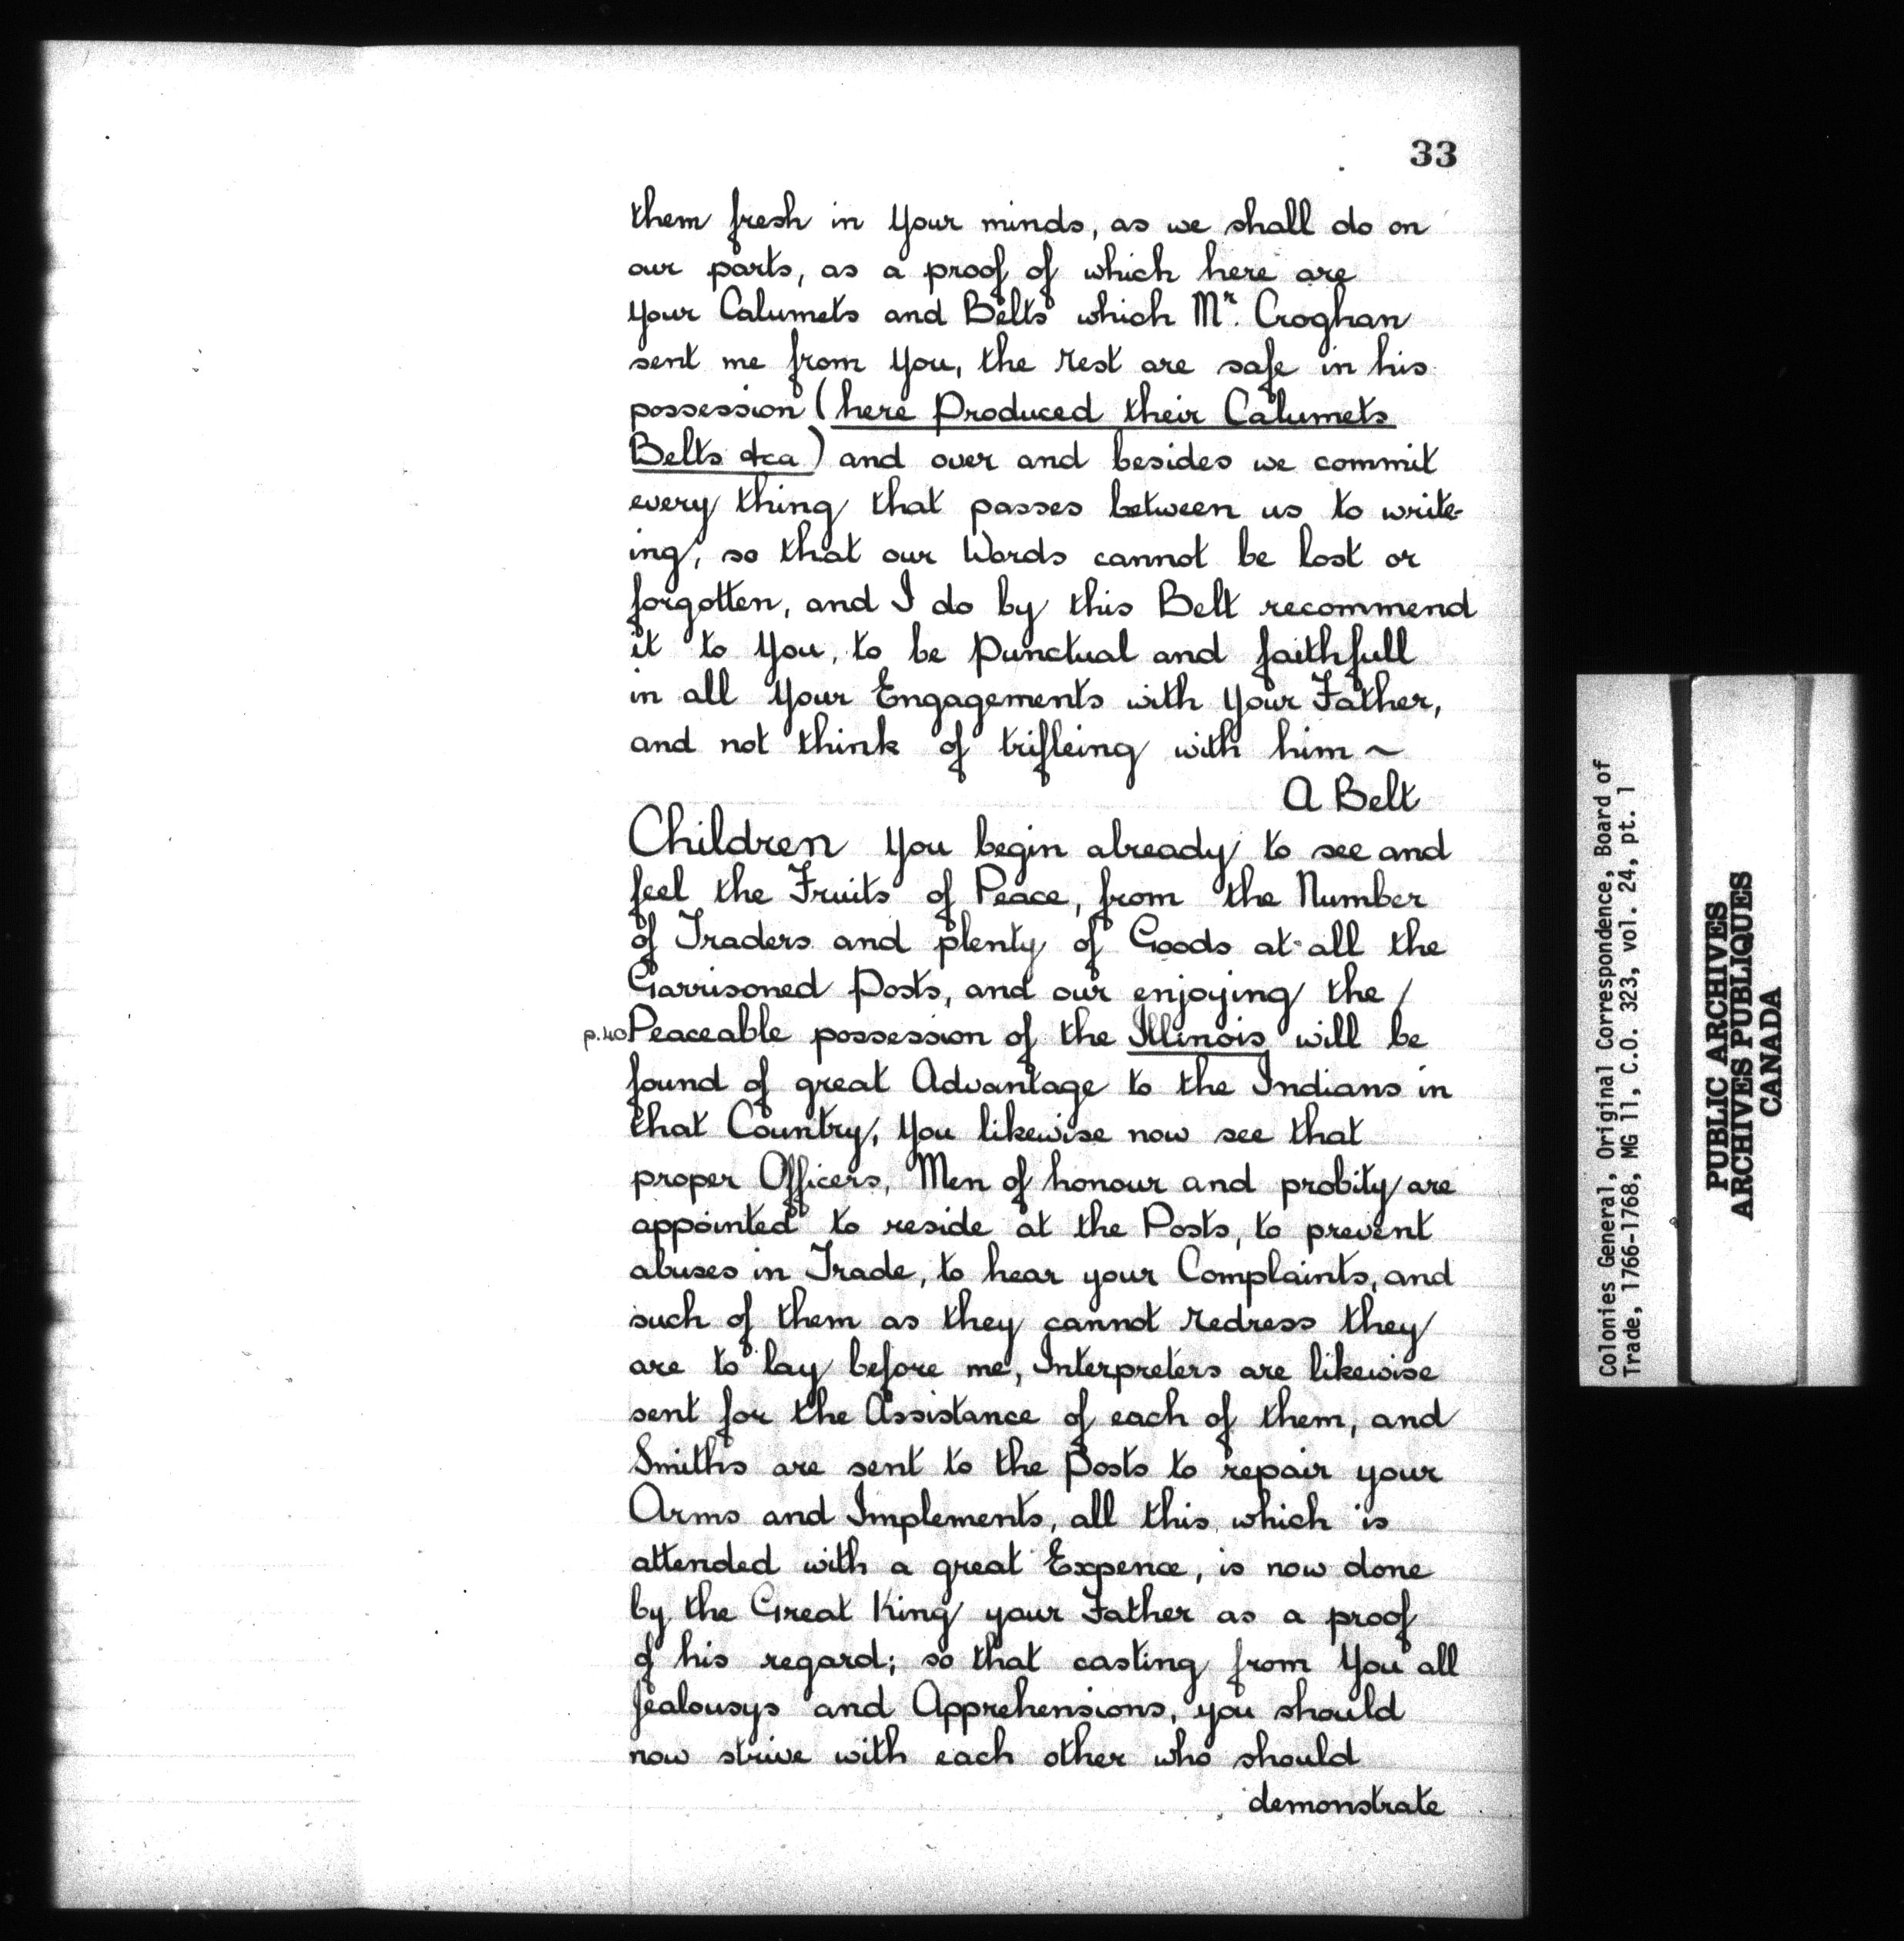 33
them fresh in Your minds, as we shall do on
our parts, as a proof of which here are
Your Calumets and Belts which Mr. Croghan
sent me from You, the rest are safe in his
possession (here Produced their Calumets
Belts &ca) and over and besides we commit
every thing that passes between us to write-
ing, so that our Words cannot be lost or
forgotten, and I do by this Belt recommend
it to You, to be Punctual and faithfull
in all Your Engagements with Your Father,
and not think of trifleing with him ~
A Belt
Children You begin already to see and
feel the Fruits of Peace, from the Number
of Traders and plenty of Goods at all the
Garrisoned Posts, and our enjoying the /
p.40 Peaceable possession of the Illinois will be
found of great Advantage to the Indians in
that Country, You likewise now see that
proper Officers, Men of honour and probity are
appointed to reside at the Posts, to prevent
abuses in Trade, to hear your Complaints, and
such of them as they cannot redress they
are to lay before me, Interpreters are likewise
sent for the Assistance of each of them, and
Smiths are sent to the Posts to repair your
Arms and Implements, all this which is
attended with a great Expence, is now done
by the Great King your Father as a proof
of his regard; so that casting from You all
Jealousys and Apprehensions, you should
now strive with each other who should
demonstrate
Colonies General, Original Correspondence, Board of
Trade, 1766-1768, MG 11, C.O. 323, vol. 24, pt. 1
PUBLIC ARCHIVES
ARCHIVES PUBLIQUES
CANADA